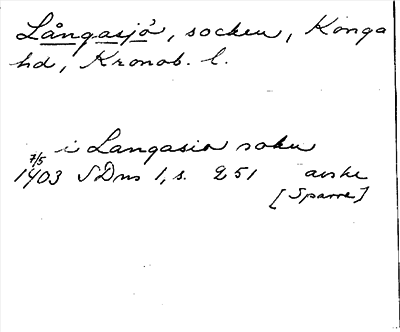 Långasjö, socken, Konga
hd, Kronob. l.
i Langasio sokn
7/5
1403 SDns 1, s. 251 avskr
[Sparre]